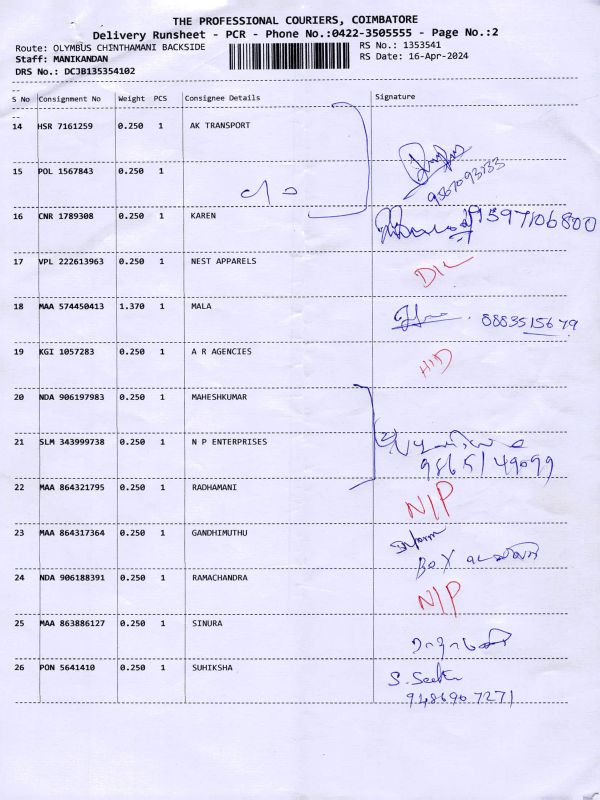 THE PROFESSIONAL COURIERS, COIMBATORE
Delivery Runsheet - PCR - Phone No.:0422-3505555 - Page No.:2
Route: OLYMBUS CHINTHAMANI BACKSIDE RS No.: 1353541
Staff: MANIKANDAN RS Date: 16-Apr-2024
DRS No.: DCJB135354102
S No Consignment No Weight PCS Consignee Details Signature
14 HSR 7161259 0.250 1 AK TRANSPORT
15 POL 1567843 0.250 1
16 CNR 1789308 0.250 1 KAREN
17 VPL 222613963 0.250 1 NEST APPARELS
18 MAA 574450413 1.370 1 MALA 8883515679
19 KGI 1057283 0.250 1 A R AGENCIES
20 NDA 906197983 0.250 1 MAHESHKUMAR
21 SLM 343999738 0.250 1 N P ENTERPRISES
9865149099
22 MAA 864321795 0.250 1 RADHAMANI N/P
23 MAA 864317364 0.250 1 GANDHIMUTHU
24 NDA 906188391 0.250 1 RAMACHANDRA N/P
25 MAA 863886127 0.250 1 SINURA
26 PON 5641410 0.250 1 SUHIKSHA
9486907271